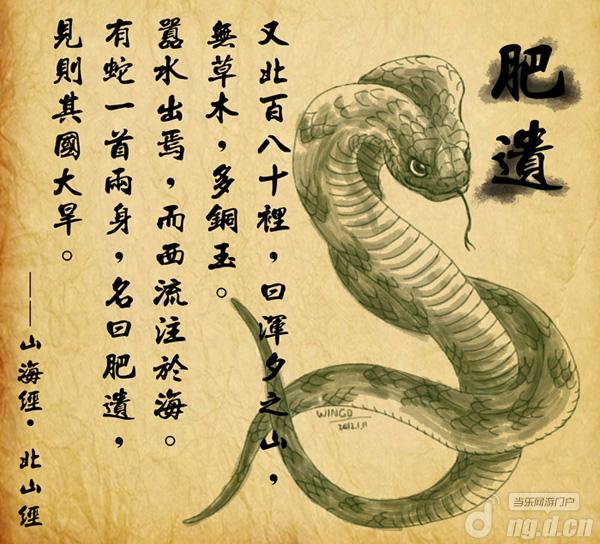 肥遺
又北百八十裡，曰渾夕之山，
無草木，多銅玉。
囂水出焉，而西流注於海。
有蛇一首兩身，名曰肥遺，
見則其國大旱。
——山海經·北山經
WINGO
2012.1.11
当乐网游门户
d ng.d.cn